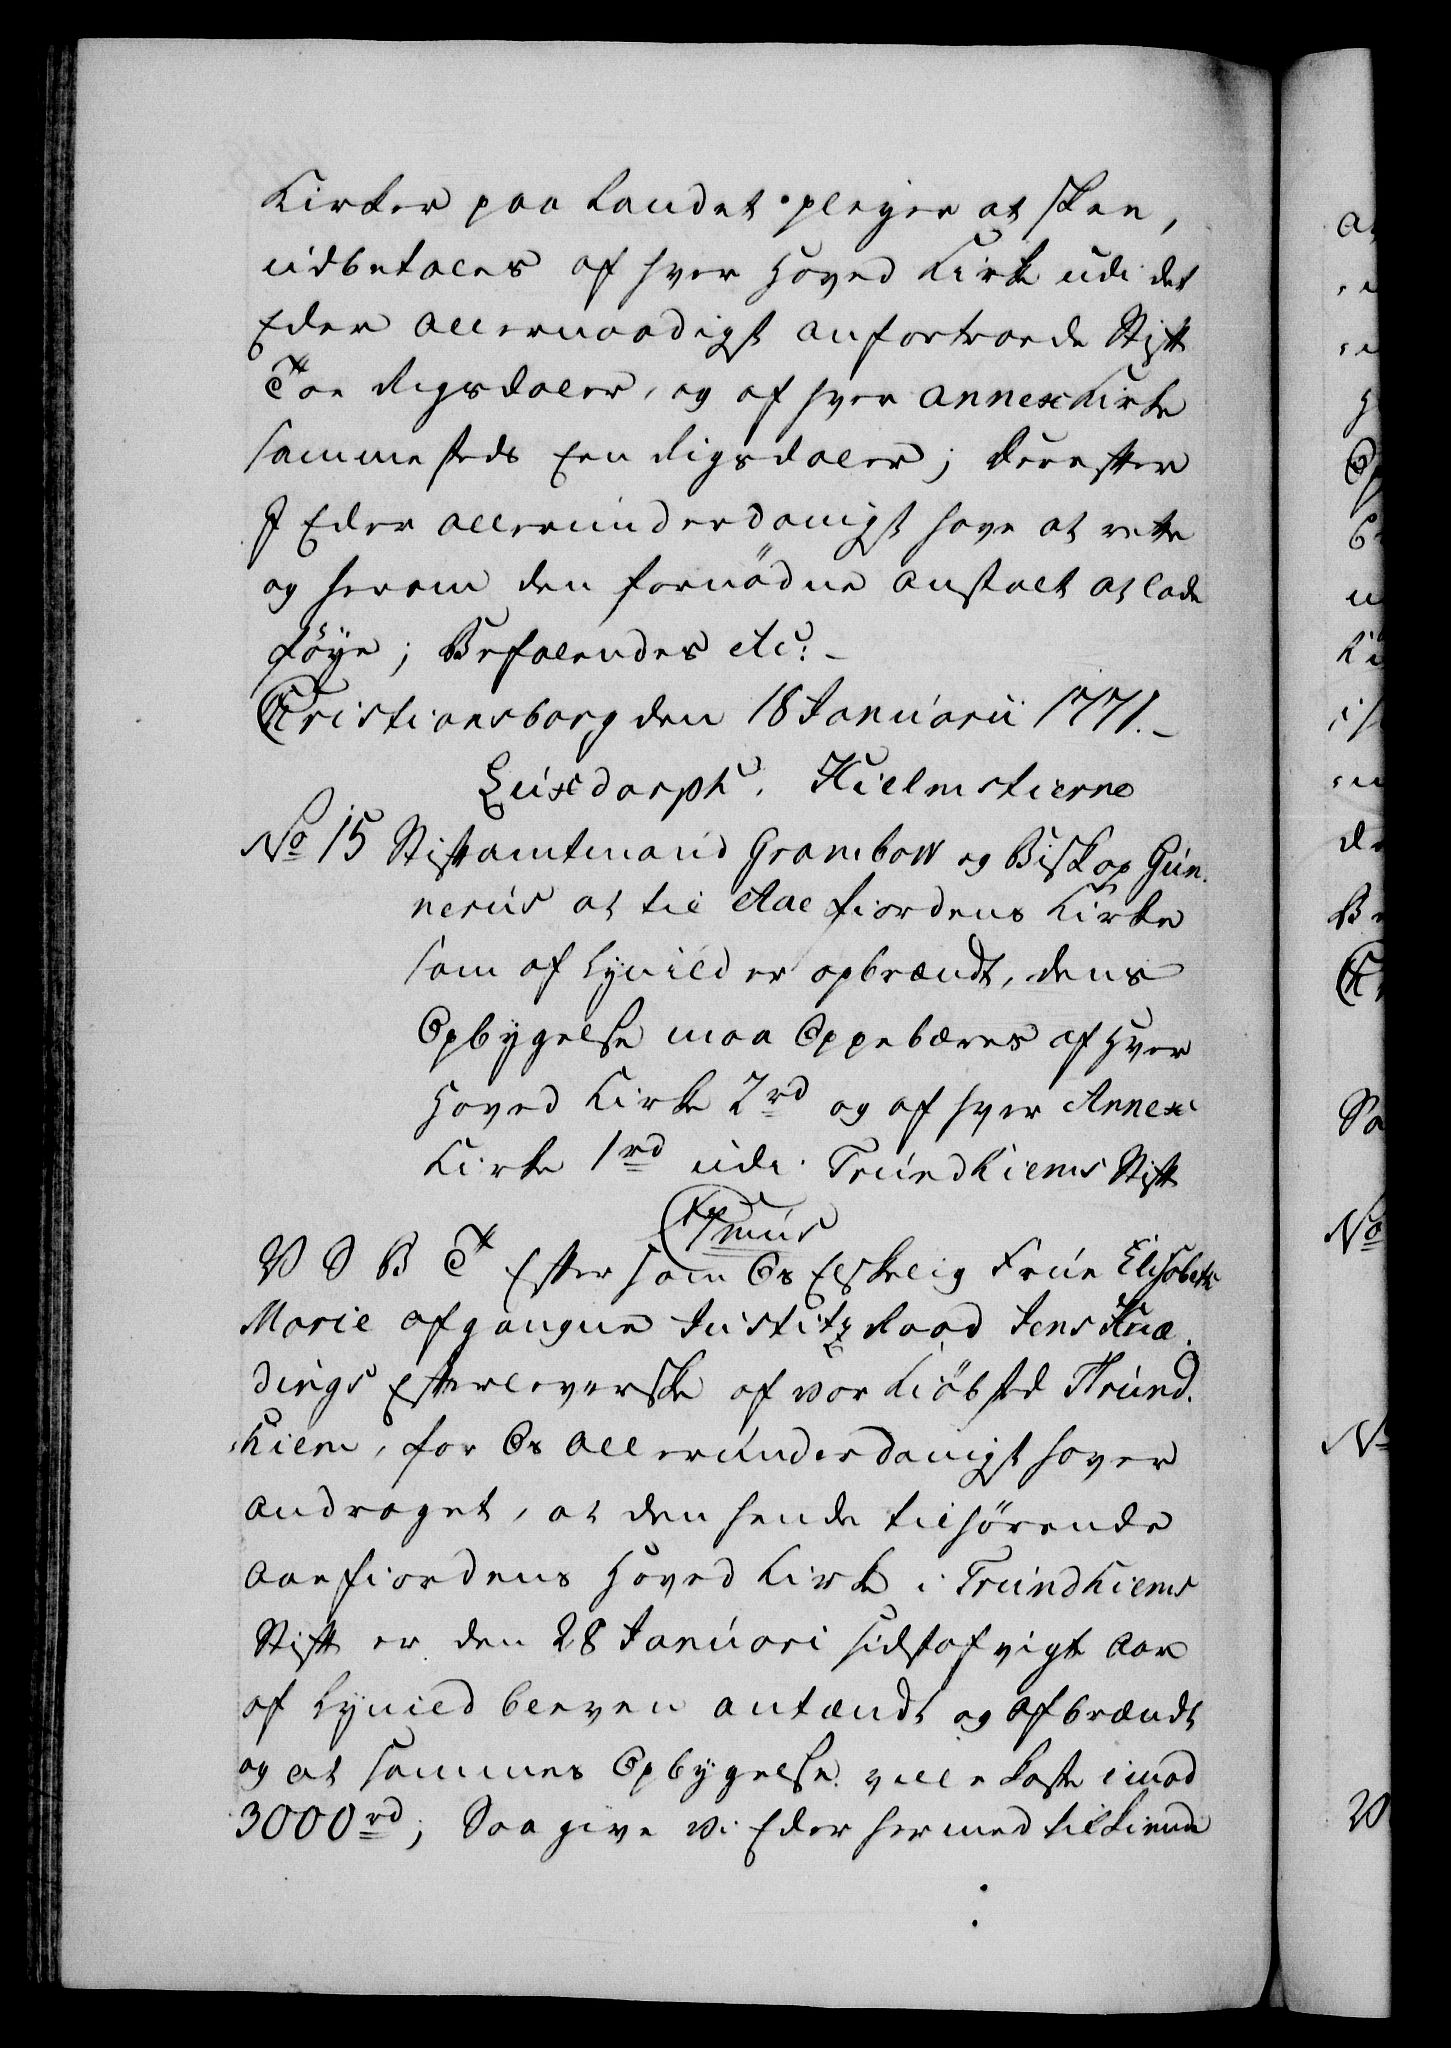 Kirker paa Landet pleyer at skee,
udbetales af hver Hoved Kirke udi det
Eder allernaadigst anfortroede Stift
Toe Rigsdaler, og af hver annex Kirke
sammesteds Een Rigsdaler; derefter
I Eder allerunderdanigst have at rette
og herom den fornødne anstalt at lade
føye; Befalendes etc: -
Christiansborg den 18 Januarii 1771. -
Luxdorph. Hielmstierne
No 15 Stiftamtmand Grambow og Biskop Gun-
nerus at til Aaefiordens Kirke
som af Lynild er opbrændt, dens
Opbygelse maa Oppebæres af Hver
Hoved Kirke 2 rd og af hver Annex
Kirke 1 rd udi Trundhiems Stift
V S B T Eftersom Os Elskelig Frue Elisabeth
Marie afgangne Justitz Raad Jens Hvæ-
dings Efterleverske af vor Kiöbsted Thrund-
hiem, for Os allerunderdanigst haver
andraget, at den hende tilhørende
Aaefiordens Hoved Kirke i Trundhiems
Stift er den 28 Januari sidstafvigte Aar
af Lynild bleven antændt og afbrændt
og at sammes Opbygelse ville koste imod
3000 rd; Saa give vi Eder hermed tilkiende